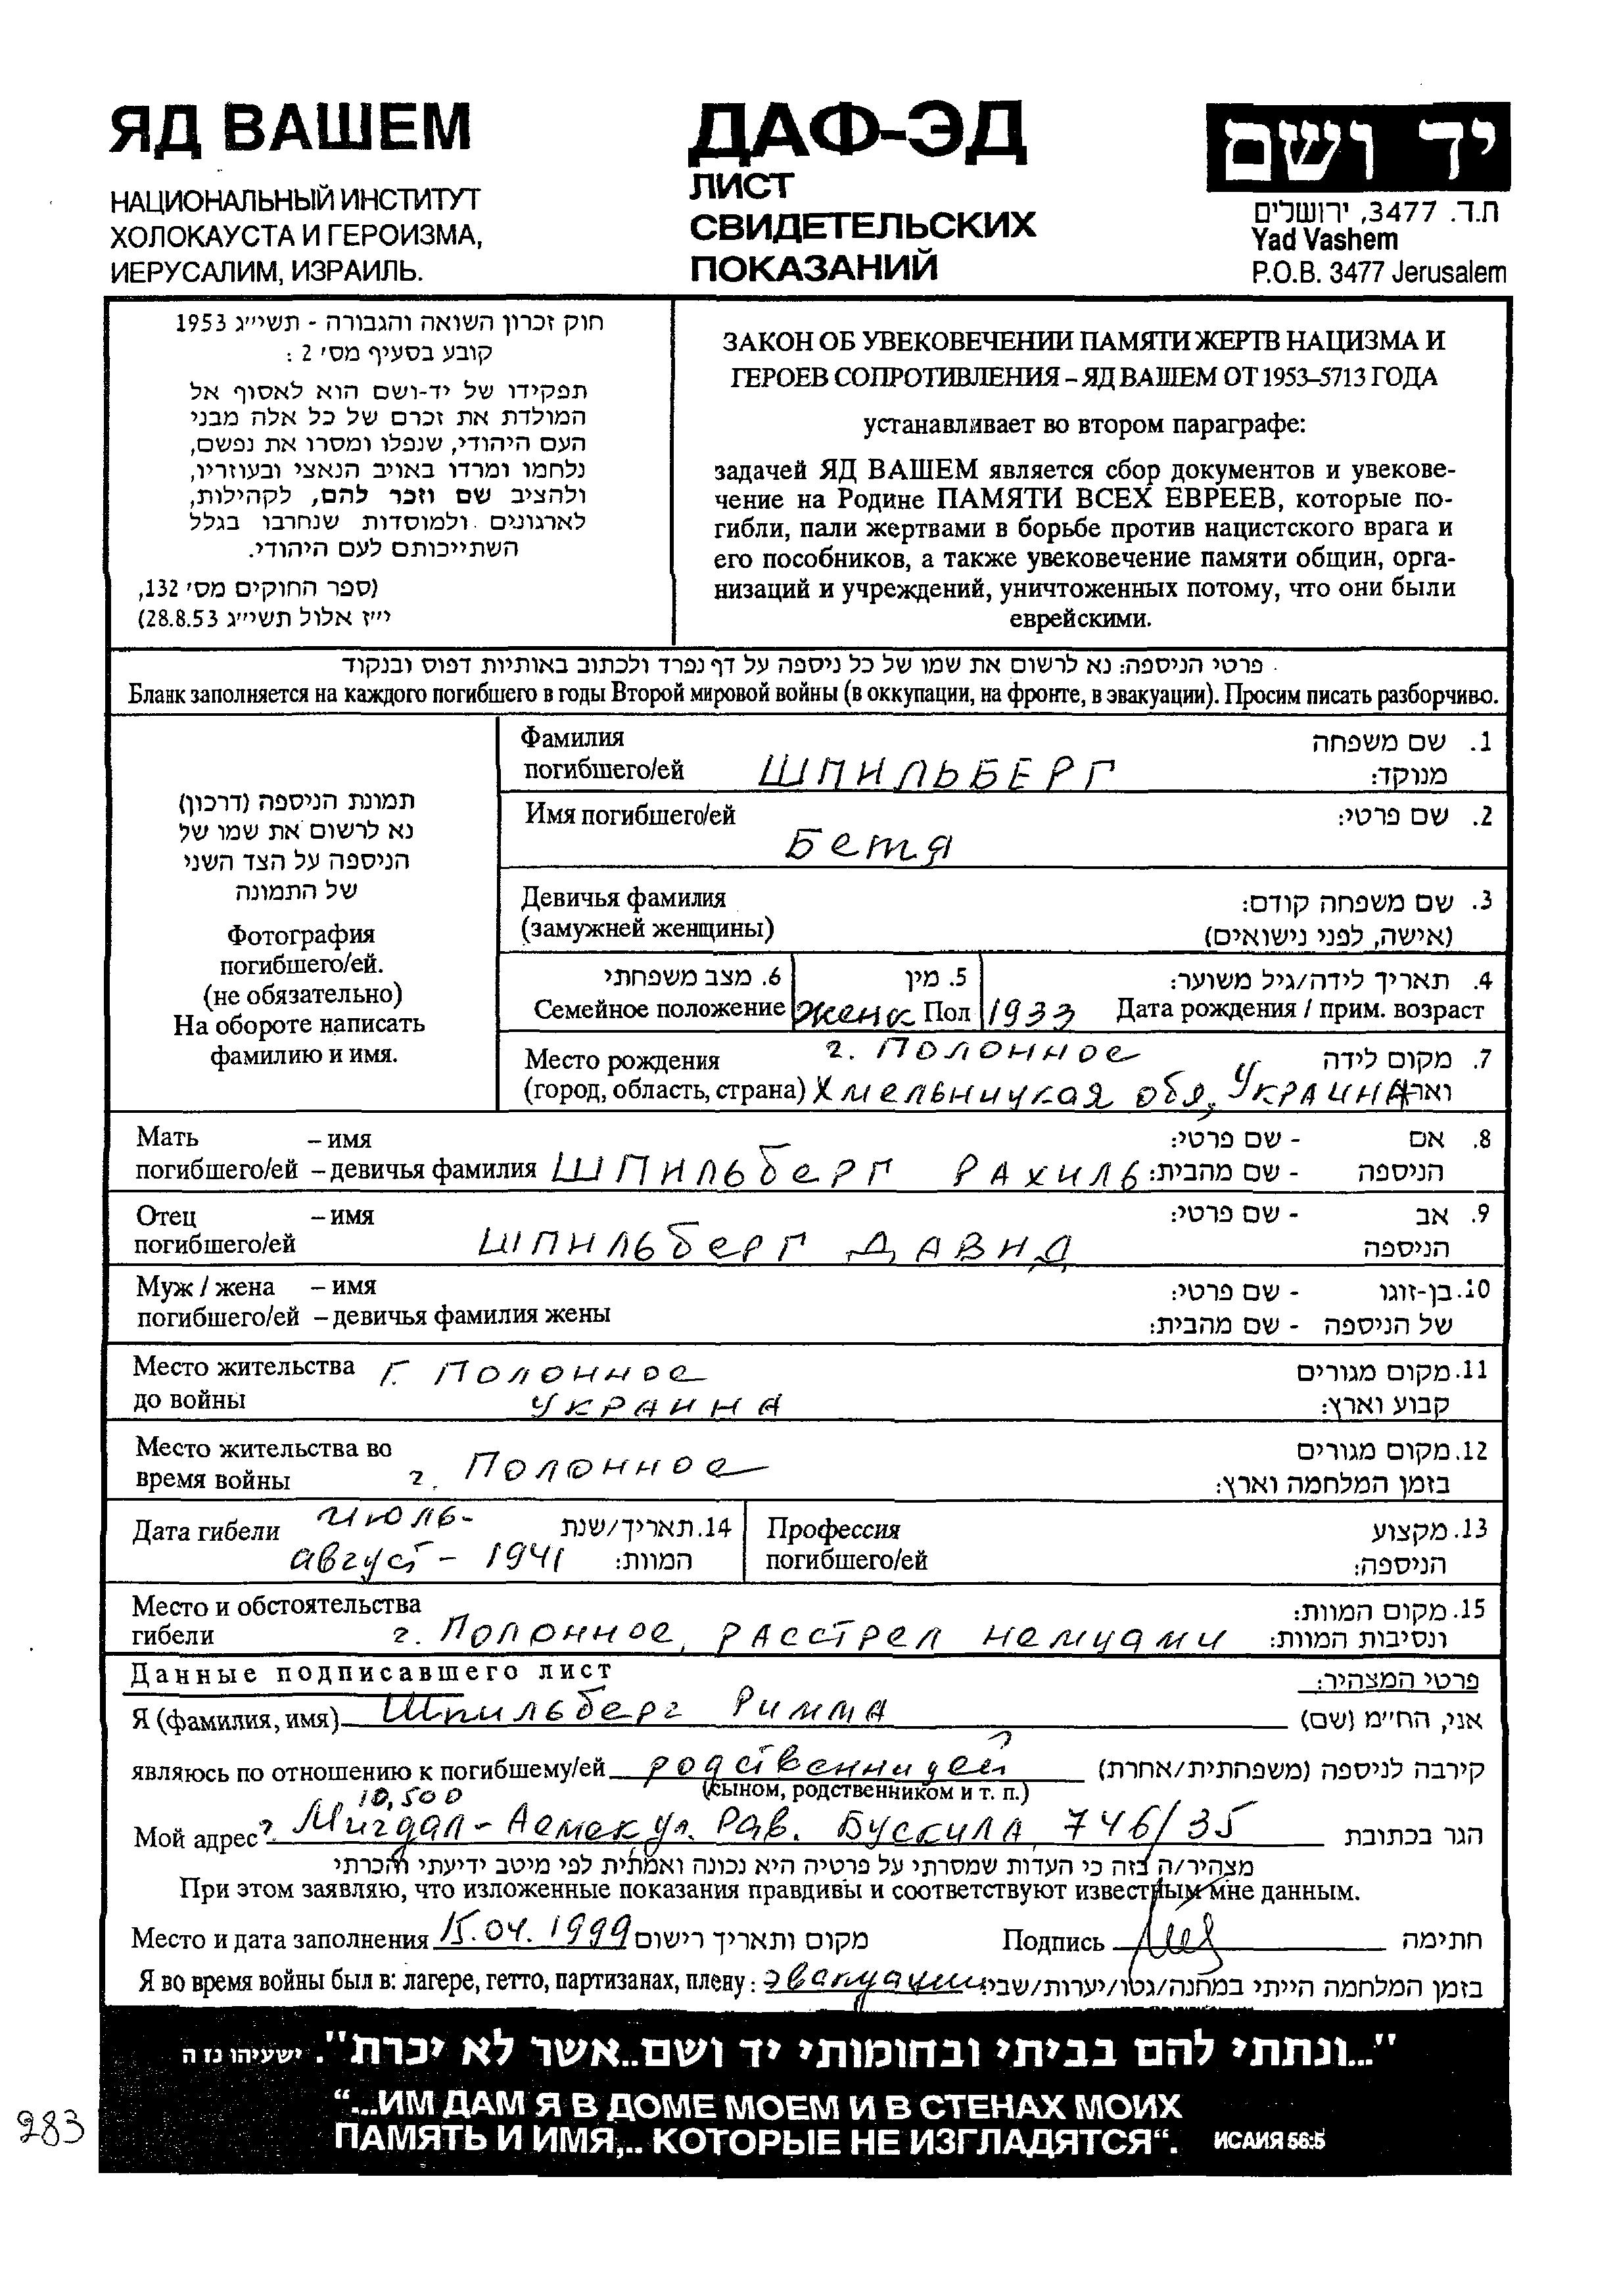 ЯД ВАШЕМ
НАЦИОНАЛЬНЫЙ ИНСТИТУТ
ХОЛОКАУСТА И ГЕРОИЗМА,
ИЕРУСАЛИМ, ИЗРАИЛЬ.
ДАФ-ЭД
ЛИСТ
СВИДЕТЕЛЬСКИХ
ПОКАЗАНИЙ
יד ושם
ת.ד. 3477, ירושלים
Yad Vashem
P.O.B. 3477 Jerusalem
חוק זכרון השואה והגבורה - תשי״ג 1953
קובע בסעיף מס׳ 2 :
תפקידו של יד-ושם הוא לאסוף אל
המולדת את זכרם של כל אלה מבני
העם היהודי, שנפלו ומסרו את נפשם,
נלחמו ומרדו באויב הנאצי ובעוזריו,
ולהציב שם וזכר להם, לקהילות,
לארגונים ולמוסדות שנחרבו בגלל
השתייכותם לעם היהודי.
(ספר החוקים מס׳ 132,
י״ז אלול תשי״ג 28.8.53)
ЗАКОН ОБ УВЕКОВЕЧЕНИИ ПАМЯТИ ЖЕРТВ НАЦИЗМА И
ГЕРОЕВ СОПРОТИВЛЕНИЯ – ЯД ВАШЕМ ОТ 1953–5713 ГОДА
устанавливает во втором параграфе:
задачей ЯД ВАШЕМ является сбор документов и увекове-
чение на Родине ПАМЯТИ ВСЕХ ЕВРЕЕВ, которые по-
гибли, пали жертвами в борьбе против нацистского врага и
его пособников, а также увековечение памяти общин, орга-
низаций и учреждений, уничтоженных потому, что они были
еврейскими.
פרטי הניספה: נא לרשום את שמו של כל ניספה על דף נפרד ולכתוב באותיות דפוס ובנקוד
Бланк заполняется на каждого погибшего в годы Второй мировой войны (в оккупации, на фронте, в эвакуации). Просим писать разборчиво.
תמונת הניספה (דרכון)
נא לרשום את שמו של
הניספה על הצד השני
של התמונה
Фотография
погибшего/ей.
(не обязательно)
На обороте написать
фамилию и имя.
Фамилия 1. שם משפחה
погибшего/ей ШПИЛЬБЕРГ מנוקד:
Имя погибшего/ей 2. שם פרטי:
Бетя
Девичья фамилия 3. שם משפחה קודם:
(замужней женщины) (אישה, לפני נישואים)
6. מצב משפחתי 5. מין 4. תאריך לידה/גיל משוער:
Семейное положение женс Пол 1933 Дата рождения / прим. возраст
Место рождения г. Полонное 7. מקום לידה
(город, область, страна) Хмельницкая обл, Украина וארץ
Мать – имя - שם פרטי: 8. אם
погибшего/ей – девичья фамилия Шпильберг Рахиль - שם מהבית: הניספה
Отец – имя - שם פרטי: 9. אב
погибшего/ей Шпильберг Давид הניספה
Муж / жена – имя - שם פרטי: 10. בן-זוגו
погибшего/ей – девичья фамилия жены - שם מהבית: של הניספה
Место жительства г. Полонное 11. מקום מגורים
до войны Украина קבוע וארץ:
Место жительства во 12. מקום מגורים
время войны г. Полонное בזמן המלחמה וארץ:
Дата гибели Июль- 14. תאריך/שנת Профессия 13. מקצוע
август - 1941 המוות: погибшего/ей הניספה:
Место и обстоятельства 15. מקום המוות:
гибели г. Полонное, расстрел немцами ונסיבות המוות:
Данные подписавшего лист פרטי המצהיר:
Я (фамилия, имя) Шпильберг Римма אני, הח״מ (שם)
являюсь по отношению к погибшему/ей родственницей קירבה לניספה (משפחתית/אחרת)
(сыном, родственником и т. п.)
10,500
Мой адрес г. Мигдал-Аемек ул. Рав. Бускила 746/35 הגר בכתובת
מצהיר/ה בזה כי העדות שמסרתי על פרטיה היא נכונה ואמתית לפי מיטב ידיעתי והכרתי
При этом заявляю, что изложенные показания правдивы и соответствуют известным мне данным.
Место и дата заполнения 15.04.1999 מקום ותאריך רישום Подпись חתימה
Я во время войны был в: лагере, гетто, партизанах, плену: эвакуации בזמן המלחמה הייתי במחנה/גטו/יערות/שבי:
"...ונתתי להם בביתי ובחומותי יד ושם..אשר לא יכרת". ישעיהו נז ה
“...ИМ ДАМ Я В ДОМЕ МОЕМ И В СТЕНАХ МОИХ
ПАМЯТЬ И ИМЯ,.. КОТОРЫЕ НЕ ИЗГЛАДЯТСЯ“. ИСАИЯ 56:5
283